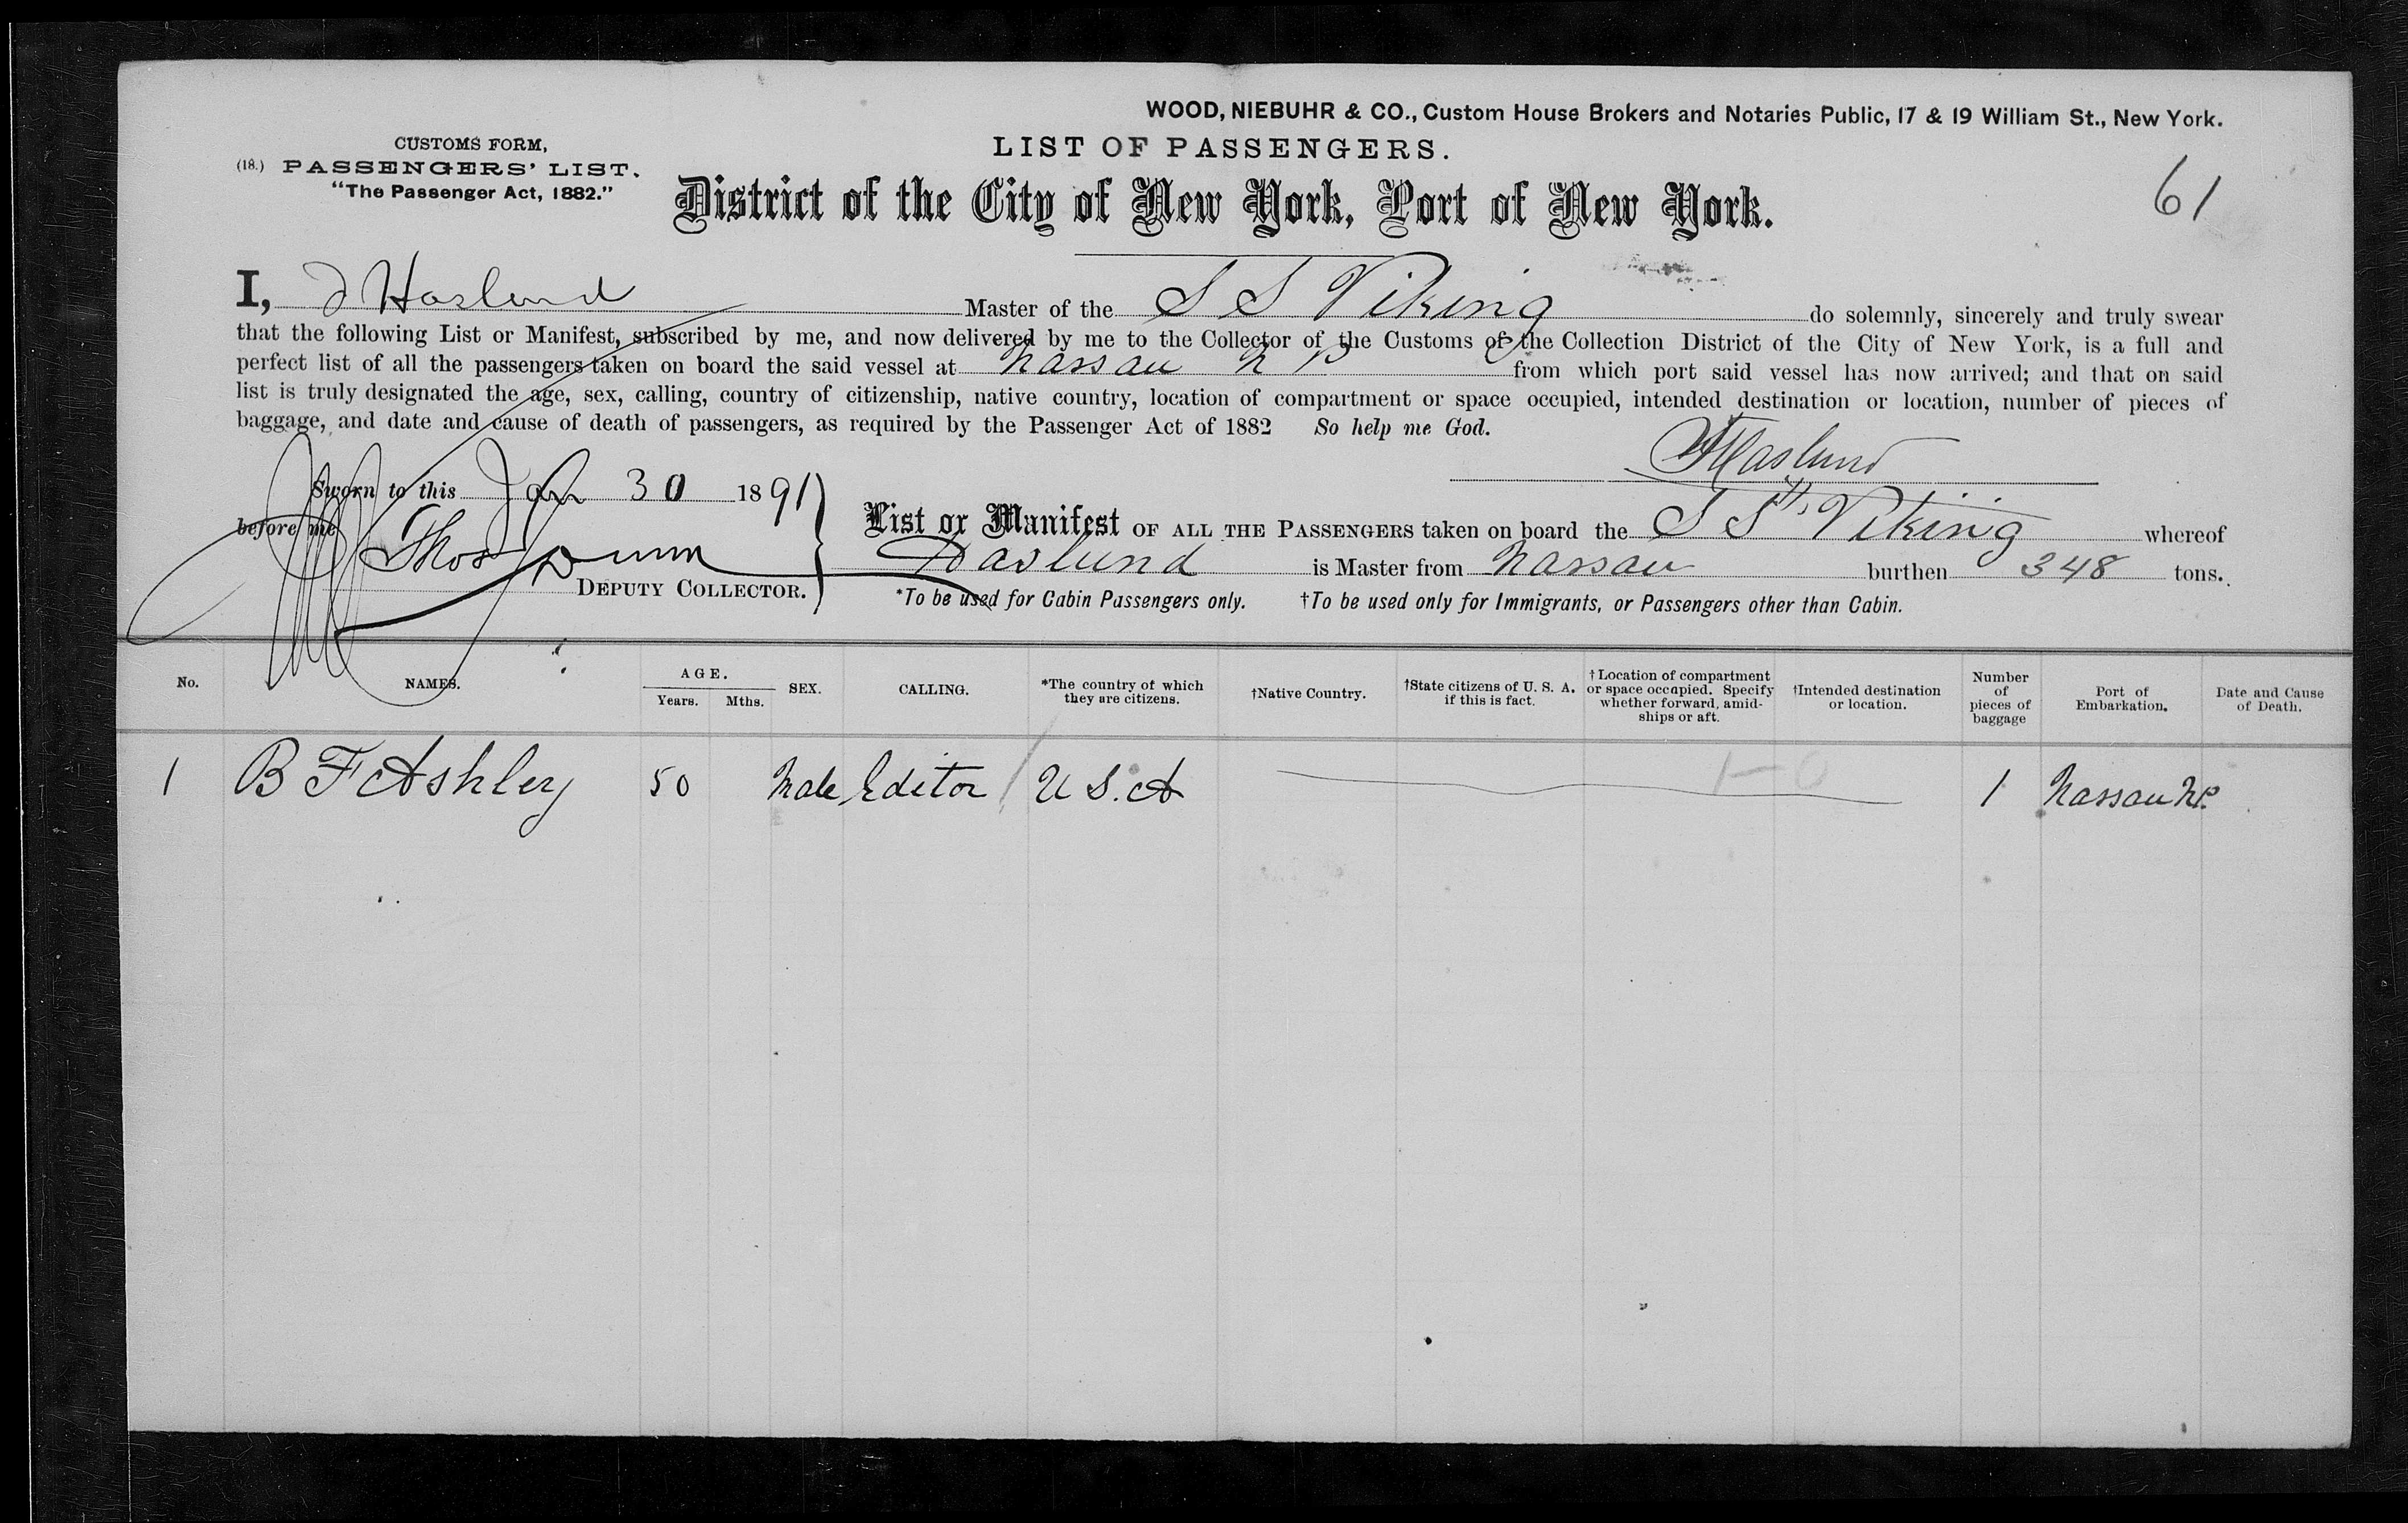 WOOD, NIEBUHR & CO., Custom House Brokers and Notaries Public, 17 & 19 William St., New York.
CUSTOMS FORM,
(18.) PASSENGERS' LIST.
"The Passenger Act, 1882."
LIST OF PASSENGERS.
District of the City of New York, Port of New York.
61
I, J Haslund Master of the S S Viking do solemnly, sincerely and truly swear
that the following List or Manifest, subscribed by me, and now delivered by me to the Collector of the Customs of the Collection District of the City of New York, is a full and
perfect list of all the passengers taken on board the said vessel at Nassau N P from which port said vessel has now arrived; and that on said
list is truly designated the age, sex, calling, country of citizenship, native country, location of compartment or space occupied, intended destination or location, number of pieces of
baggage, and date and cause of death of passengers, as required by the Passenger Act of 1882 So help me God.
Haslund
Sworn to this Jan 30 1891
before me Thos Dunn
DEPUTY COLLECTOR.
List or Manifest OF ALL THE PASSENGERS taken on board the S S Viking whereof
Haslund is Master from Nassau burthen 348 tons.
*To be used for Cabin Passengers only. †To be used only for Immigrants, or Passengers other than Cabin.
No. NAMES. AGE. Years. Mths. SEX. CALLING. *The country of which they are citizens. †Native Country. †State citizens of U. S. A. if this is fact. †Location of compartment or space occupied. Specify whether forward, amidships or aft. †Intended destination or location. Number of pieces of baggage Port of Embarkation. Date and Cause of Death.
1 B F Ashley 50 Male Editor U S. A 1-0 1 Nassau N.P.